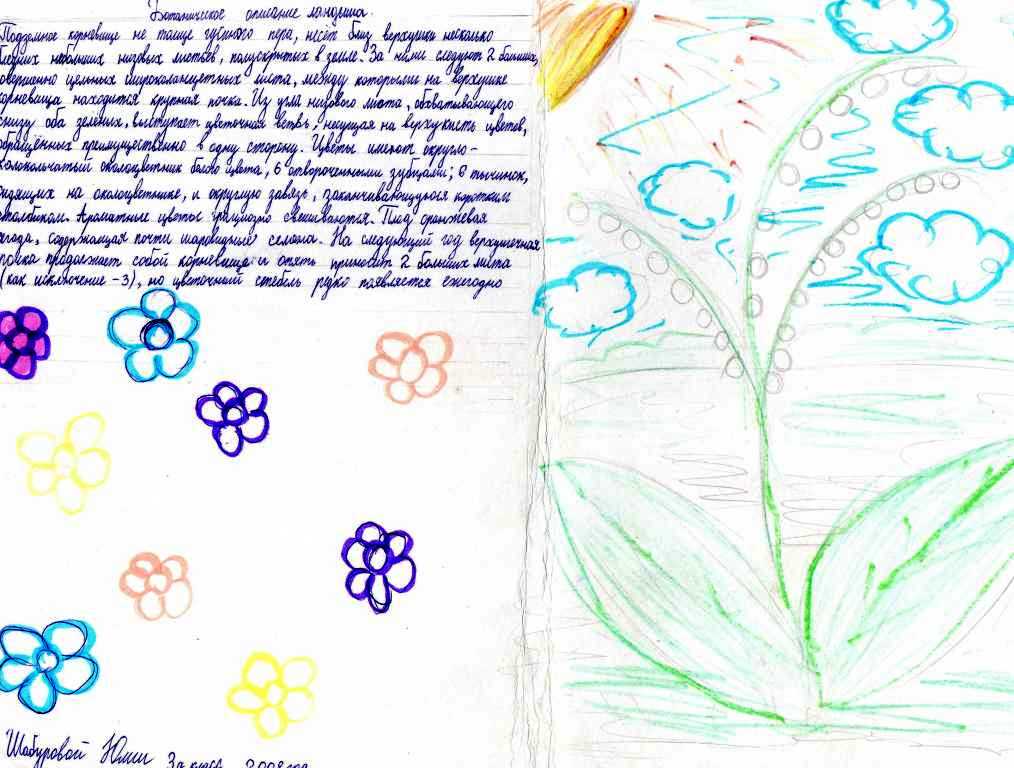 Ботаническое описание ландыша.
Подземное корневище не толще гусиного пера, несёт близ верхушки несколько
бледных небольших низовых листьев, полускрытых в земле. За ними следуют 2 больших,
совершенно цельных широколанцетных листа, между которыми на верхушке
корневища находится крупная почка. Из угла низового листа, обхватывающего
снизу оба зелёных, выступает цветочная ветвь, несущая на верху кисть цветов,
обращённых преимущественно в одну сторону. Цветы имеют округло-
колокольчатый околоцветник белого цвета, 6 отвороченными зубцами; 6 тычинок,
сидящих на околоцветнике, и округлую завязь, заканчивающуюся коротким
столбиком. Ароматные цветы грациозно свешиваются. Плод оранжевая
ягода, содержащая почти шаровидные семена. На следующий год верхушечная
почка продолжает собой корневище и опять приносит 2 больших листа
(как исключение -3), но цветочный стебель редко появляется ежегодно
Шабуровой Юлии 3а класс 2008 год